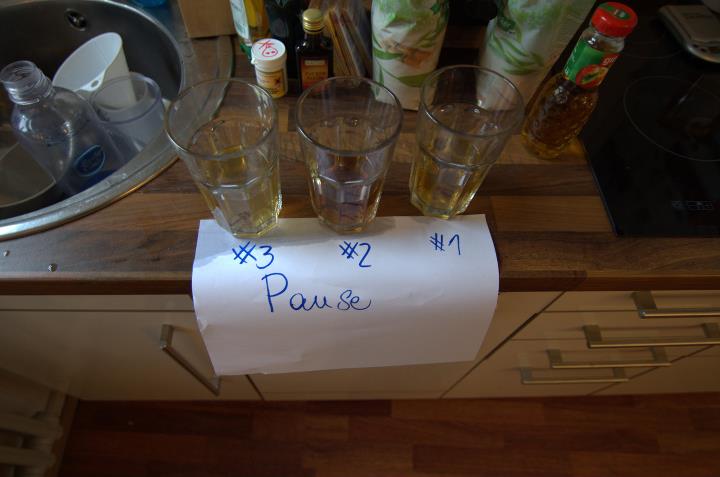 #3 #2 #1
Pause